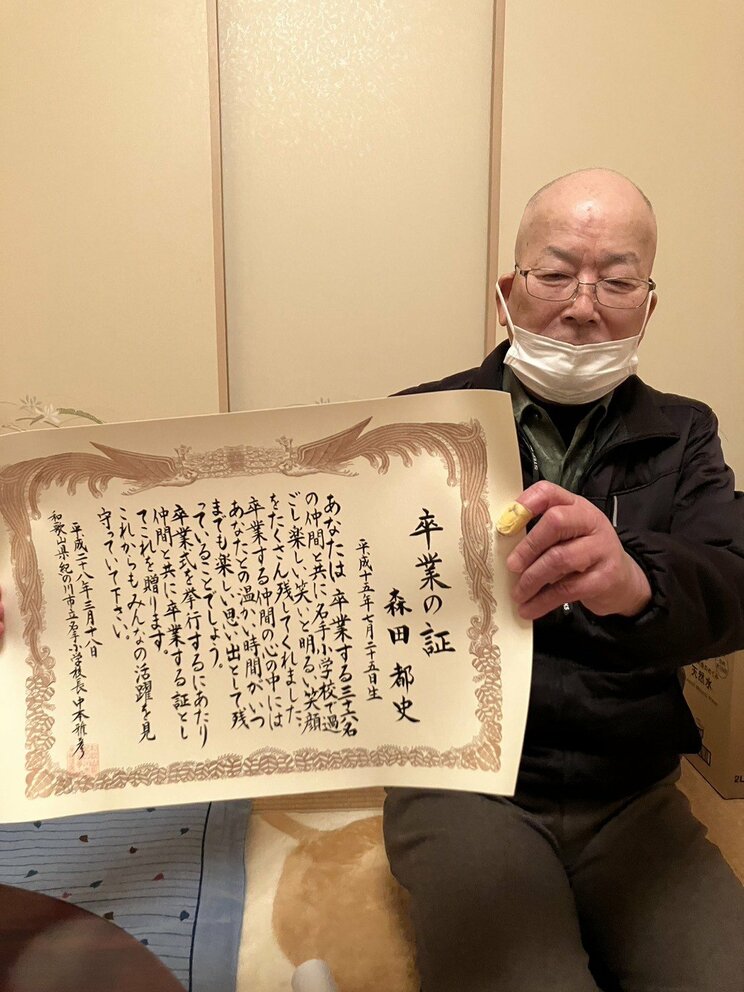 卒業の証
森田都史
平成十五年七月二十五日生
あなたは 卒業する三十六名
の仲間と共に 名手小学校で過
ごし楽しい笑いと明るい笑顔
をたくさん残してくれました
卒業する仲間の心の中には
あなたとの温かい時間がいつ
までも楽しい思い出として残
っていることでしょう。
卒業式を挙行するにあたり
仲間と共に卒業する証とし
てこれを贈ります。
これからもみんなの活躍を見
守っていて下さい。
平成二十八年三月十八日
和歌山県紀の川市立名手小学校長 中本雅彦
天然水
2L